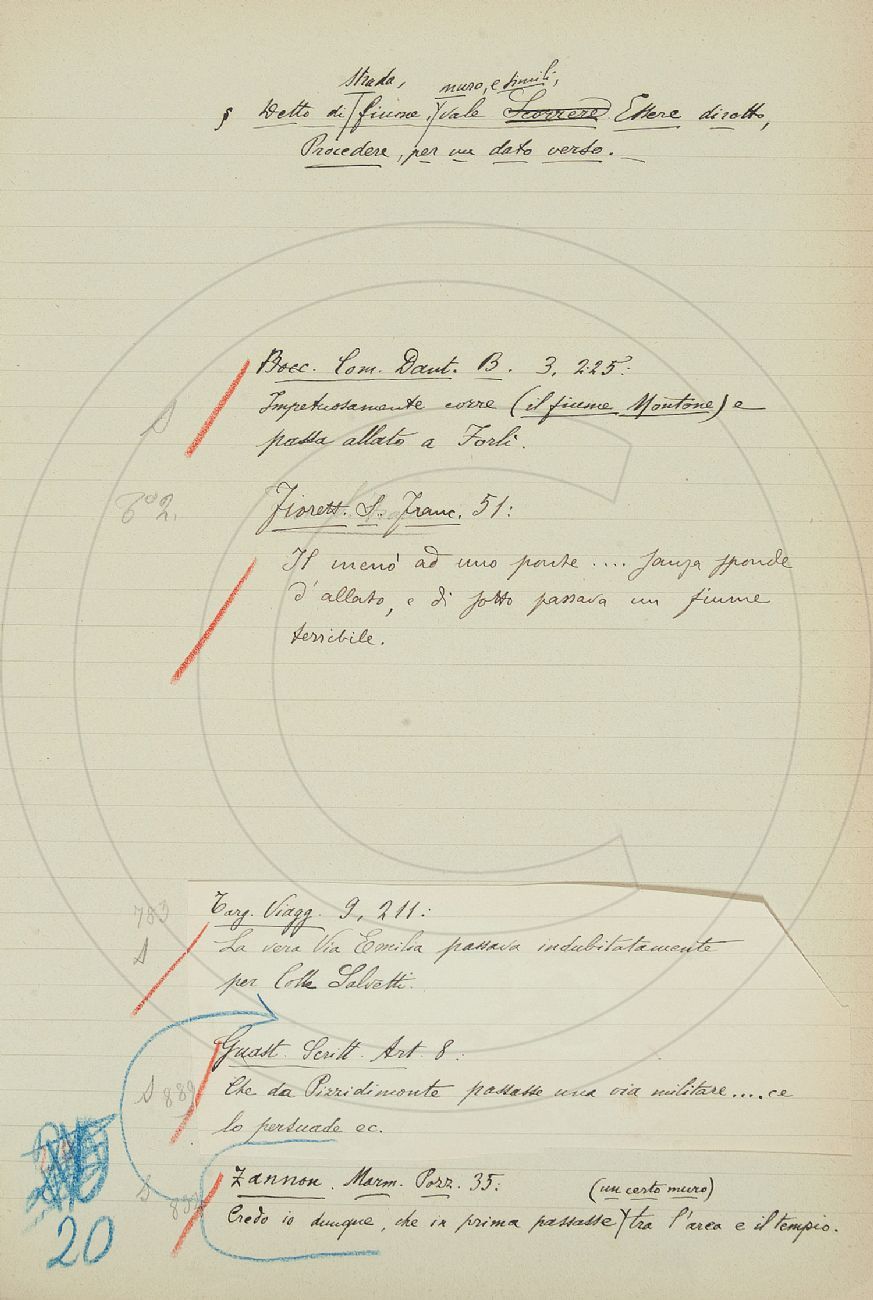 strada, muro, e simili,
§ Detto di fiume, vale Scorrere Essere diretto,
Procedere, per un dato verso.
Bocc. Com. Dant. B. 3, 225:
Impetuosamente corre (il fiume Montone) e
passa allato a Forlì.
Fiorett. S. Franc. 51:
Il menò ad uno ponte .... sanza sponde
d'allato, e di sotto passava un fiume
terribile.
783
Targ. Viagg. 9, 211:
La vera Via Emilia passava indubitatamente
per Colle Salvetti.
Guast. Scritt. Art. 8:
889
Che da Pizzidimonte passasse una via militare .... ce
lo persuade ec.
Zannon. Marm. Pozz. 35:
(un certo muro)
Credo io dunque, che in prima passasse tra l'arca e il tempio.
20